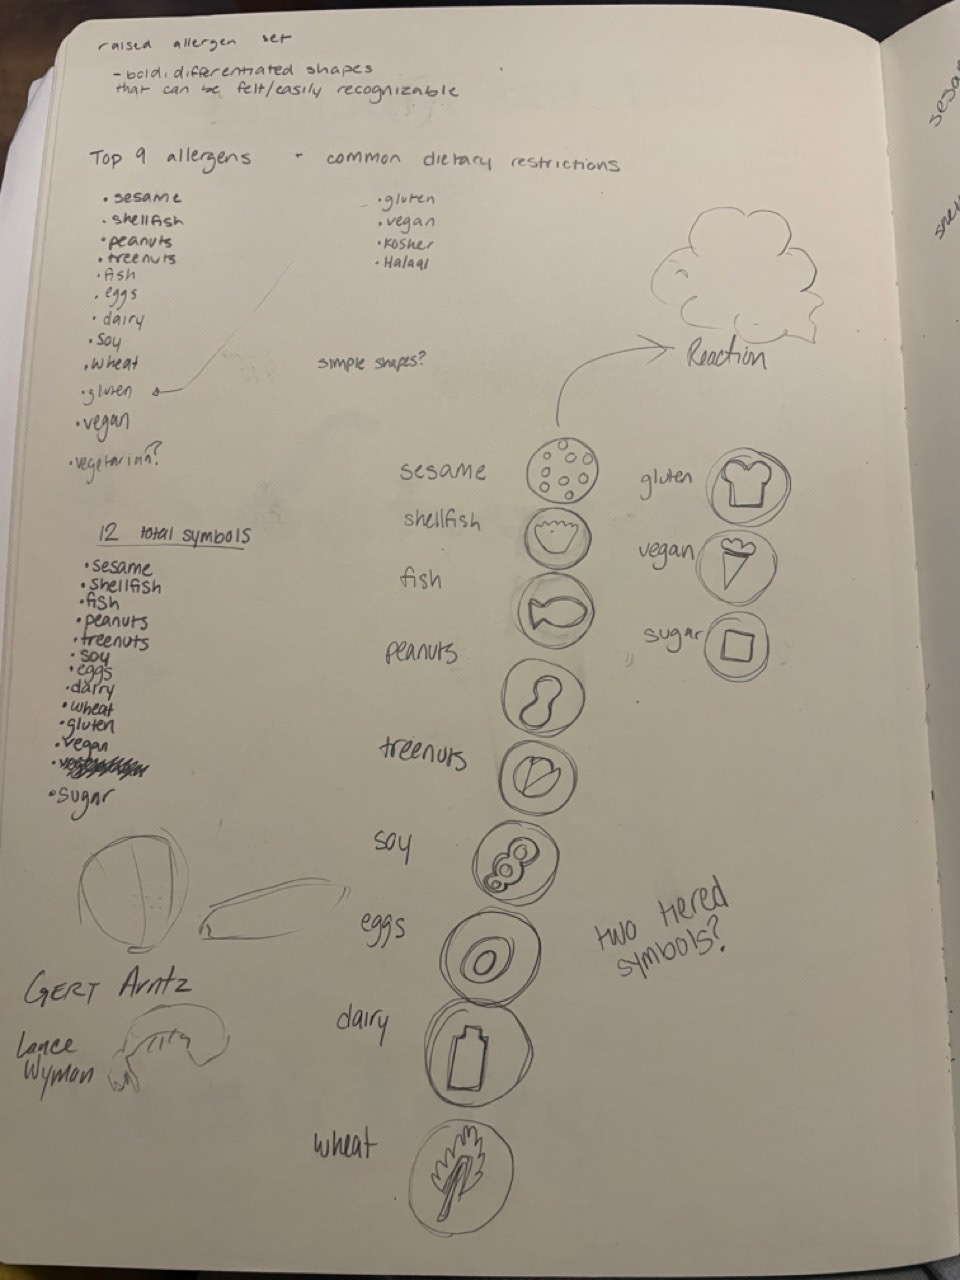 raised allergen set
- bold, differentiated shapes
that can be felt/easily recognizable
Top 9 allergens - common dietary restrictions
• sesame
• shellfish
• peanuts
• treenuts
• fish
• eggs
• dairy
• soy
• wheat
• gluten
• vegan
• vegetarian?
• gluten
• vegan
• Kosher
• Halaal
simple shapes?
Reaction
12 total symbols
• sesame
• shellfish
• fish
• peanuts
• treenuts
• soy
• eggs
• dairy
• wheat
• gluten
• vegan
• sugar
sesame
shellfish
fish
peanuts
treenuts
soy
eggs
dairy
wheat
gluten
vegan
sugar
two tiered
symbols?
GERT Arntz
Lance
Wyman